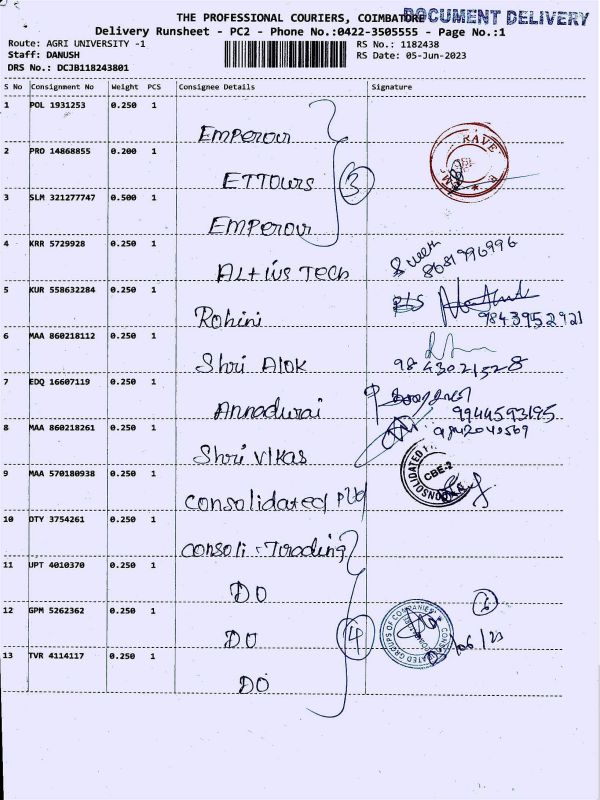 THE PROFESSIONAL COURIERS, COIMBATORE
DOCUMENT DELIVERY
Delivery Runsheet - PC2 - Phone No.:0422-3505555 - Page No.:1
Route: AGRI UNIVERSITY -1
RS No.: 1182438
Staff: DANUSH
RS Date: 05-Jun-2023
DRS No.: DCJB118243801
S No Consignment No Weight PCS Consignee Details Signature
1 POL 1931253 0.250 1
Emperour
2 PRD 14868855 0.200 1
ETTOurs 3
3 SLM 321277747 0.500 1
Emperour
4 KRR 5729928 0.250 1
Altius Tech
8681996996
5 KUR 558632284 0.250 1
Rohini
9843952921
6 MAA 860218112 0.250 1
Shri Alok
9843021528
7 EDQ 16607119 0.250 1
Annadurai
9944593195
8 MAA 860218261 0.250 1
Shri Vikas
9842040569
9 MAA 570180938 0.250 1
CBE-2
Consolidated
10 OTY 3754261 0.250 1
Consoli - Trading
11 UPT 4010370 0.250 1
DO
12 GPM 5262362 0.250 1
CONSOLIDATED GROUPS OF COMPANIES
DO 4
13 TVR 4114117 0.250 1
DO